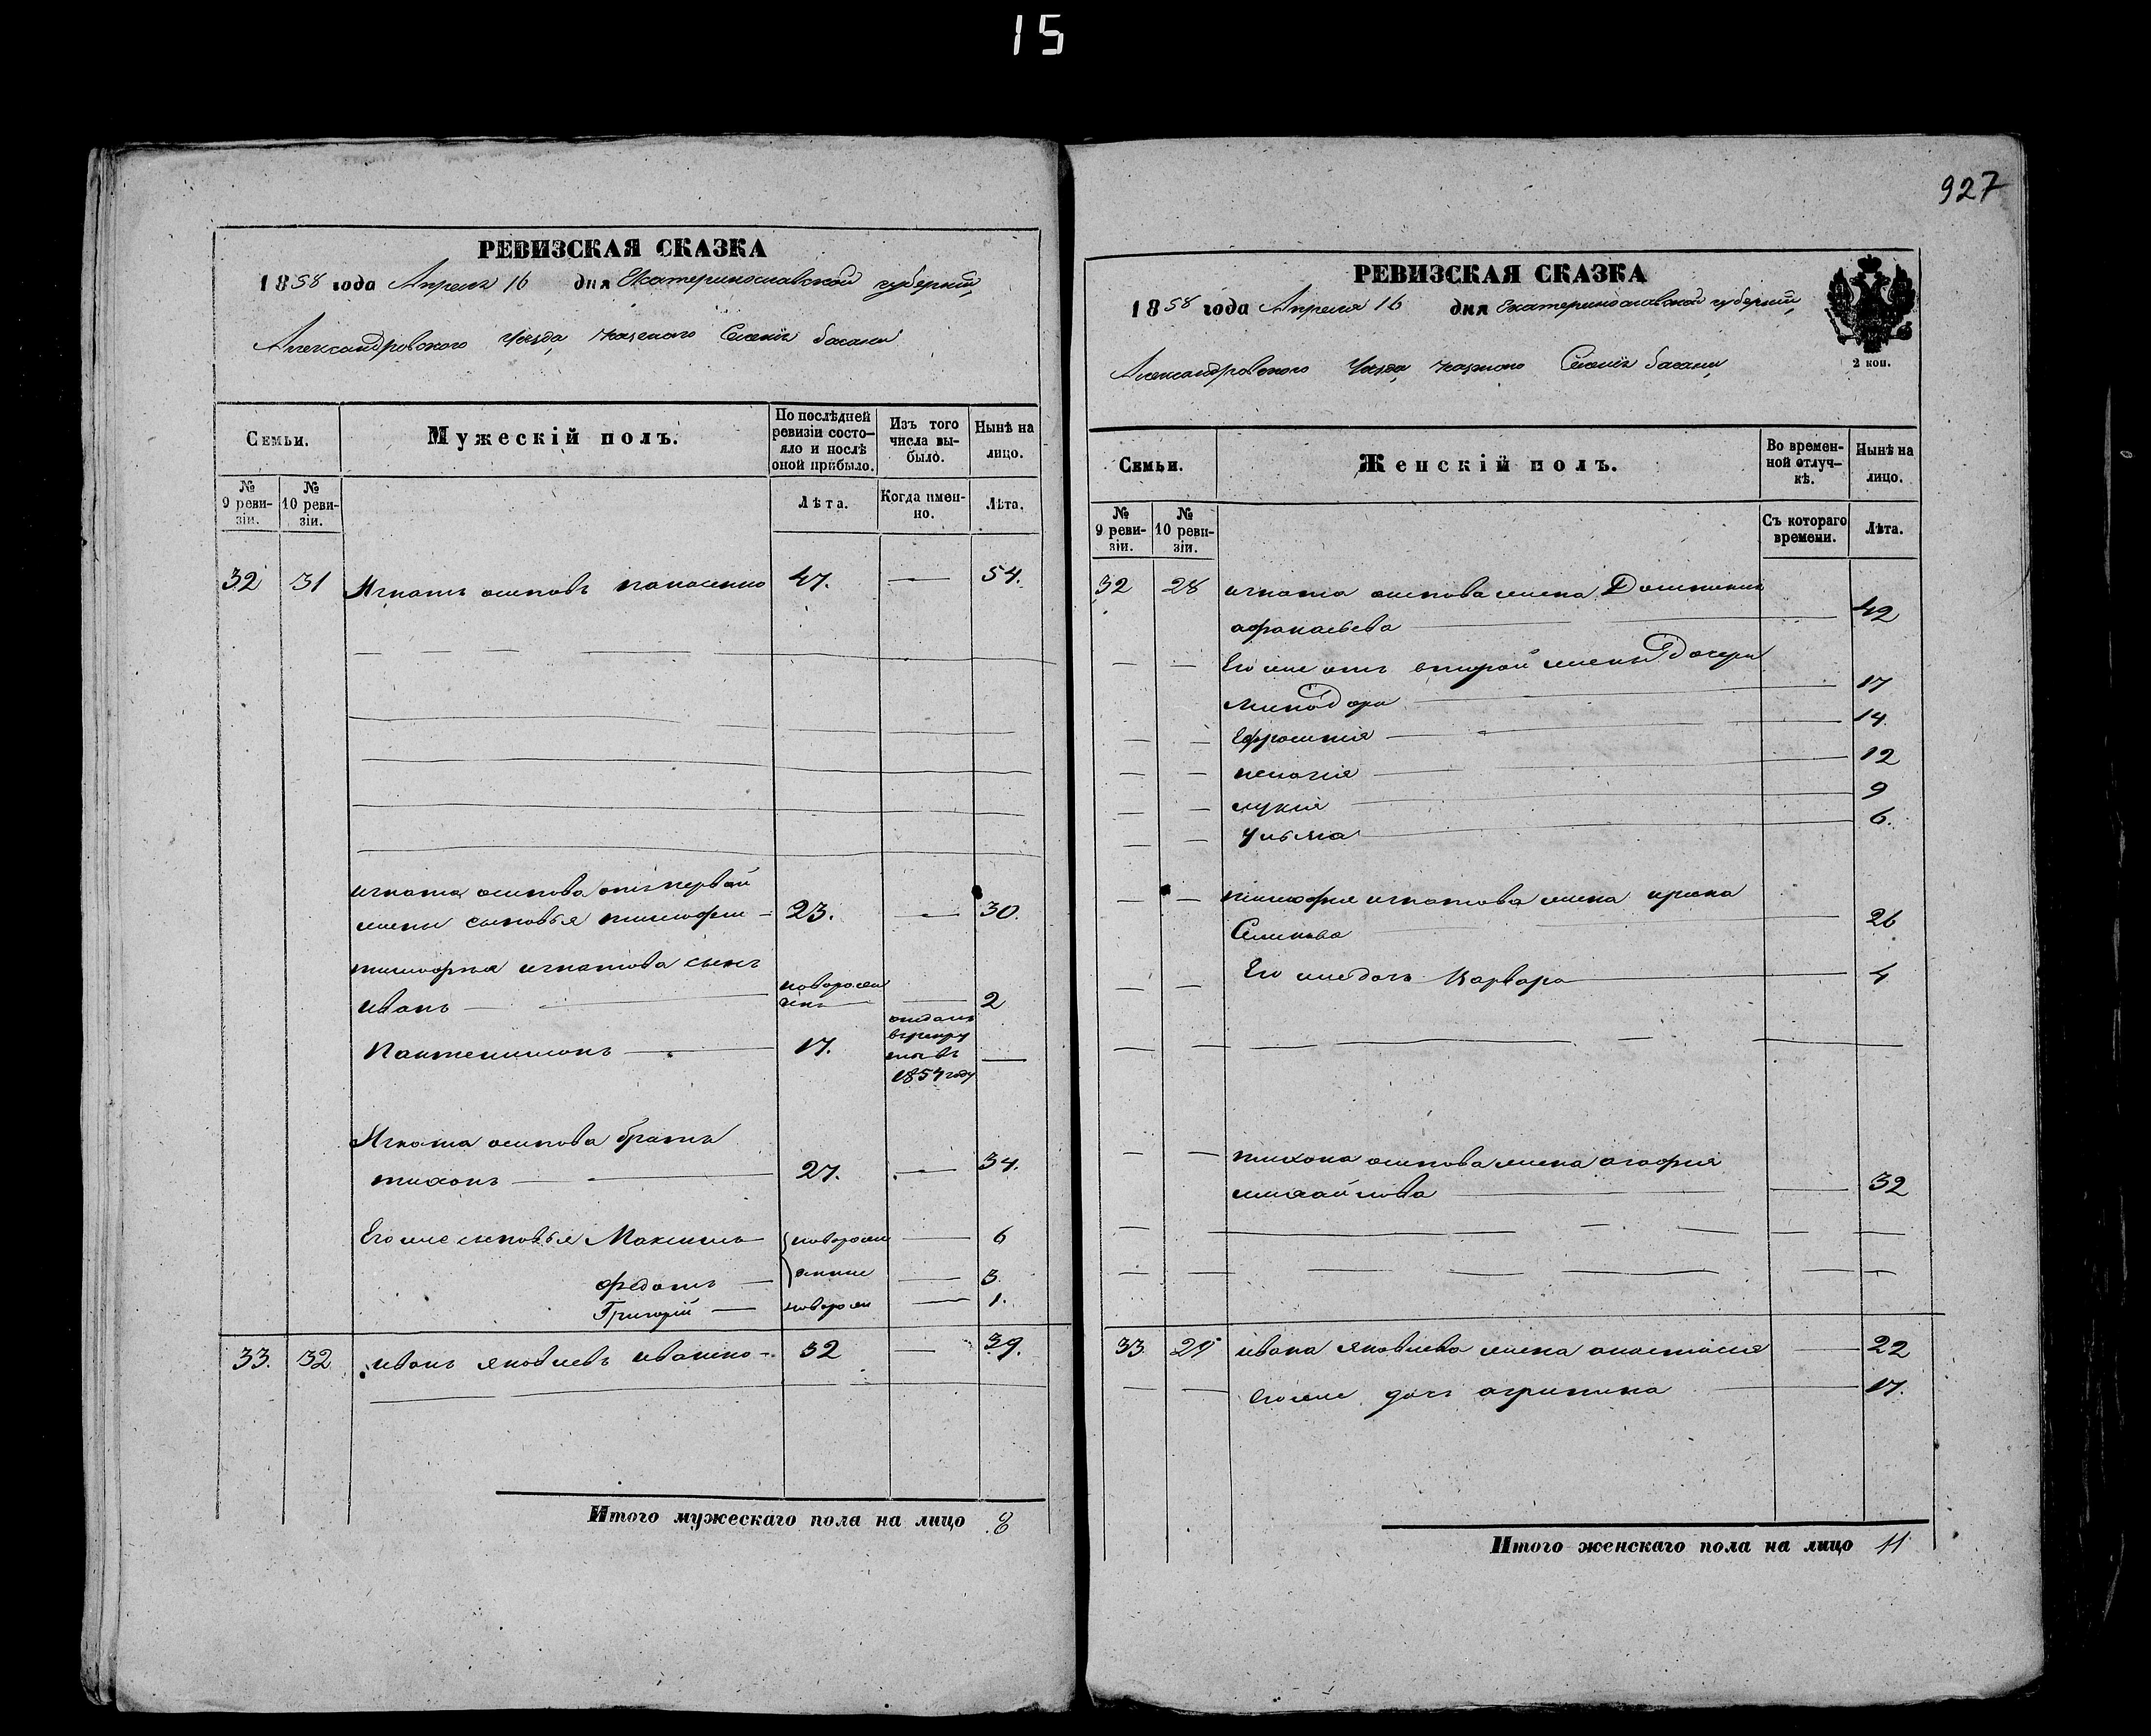 15
927
РЕВИЗСКАЯ СКАЗКА
1858 года Апреля 16 дня Екатеринославской губернии,
Александровского уезда казеного Селения басани
Семьи.
Мужескій полъ.
По послѣдней ревизіи состо-
яло и послѣ оной прибыло.
Изъ того числа вы-
было.
Нынѣ на лицо.
№ 9 реви-
зіи.
№ 10 реви-
зіи.
Лѣта.
Когда имен-
но.
Лѣта.
32 31 Игнатъ осиповъ панасенко 47. — 54.
игната осипова отъ первой
жены сыновья тимофей — 23. — 30.
тимофея игнатова сынъ
иванъ — новорож
денъ — 2
Пантелимонъ — 17.
отданъ
в рекру
ты въ
1854 году —
Игната осипова братъ
тихонъ — 27. — 34.
Его же сыновья Максимъ новорож — 6
федотъ — денные — 3.
Григорій — новорож — 1.
33. 32 иванъ яковлевъ ивашко — 32 — 39.
Итого мужескаго пола на лицо 8
РЕВИЗСКАЯ СКАЗКА
1858 года Апреля 16 дня Екатеринославской губернии,
Александровского уезда казеного Селения басани
2 коп.
Семьи.
Женскій полъ.
Во времен-
ной отлуч-
кѣ.
Нынѣ на лицо.
№ 9 реви-
зіи.
№ 10 реви-
зіи.
Съ котораго времени.
Лѣта.
32 28 игната осипова жена Домникия
афанасьева — 42
Его же отъ второй жены Дочери
минодора — 17
Ефросиния — 14.
пелагия — 12
лукия — 9
Ульяна — 6.
тимофея игнатова жена ирина
Семенова — 26
Его же дочь Варвара — 4
тихона осипова жена агафия
михайлова — 32
33. 29 ивана яковлева жена анастасия — 22
Его же дочь агрипина — 17.
Итого женскаго пола на лицо 11